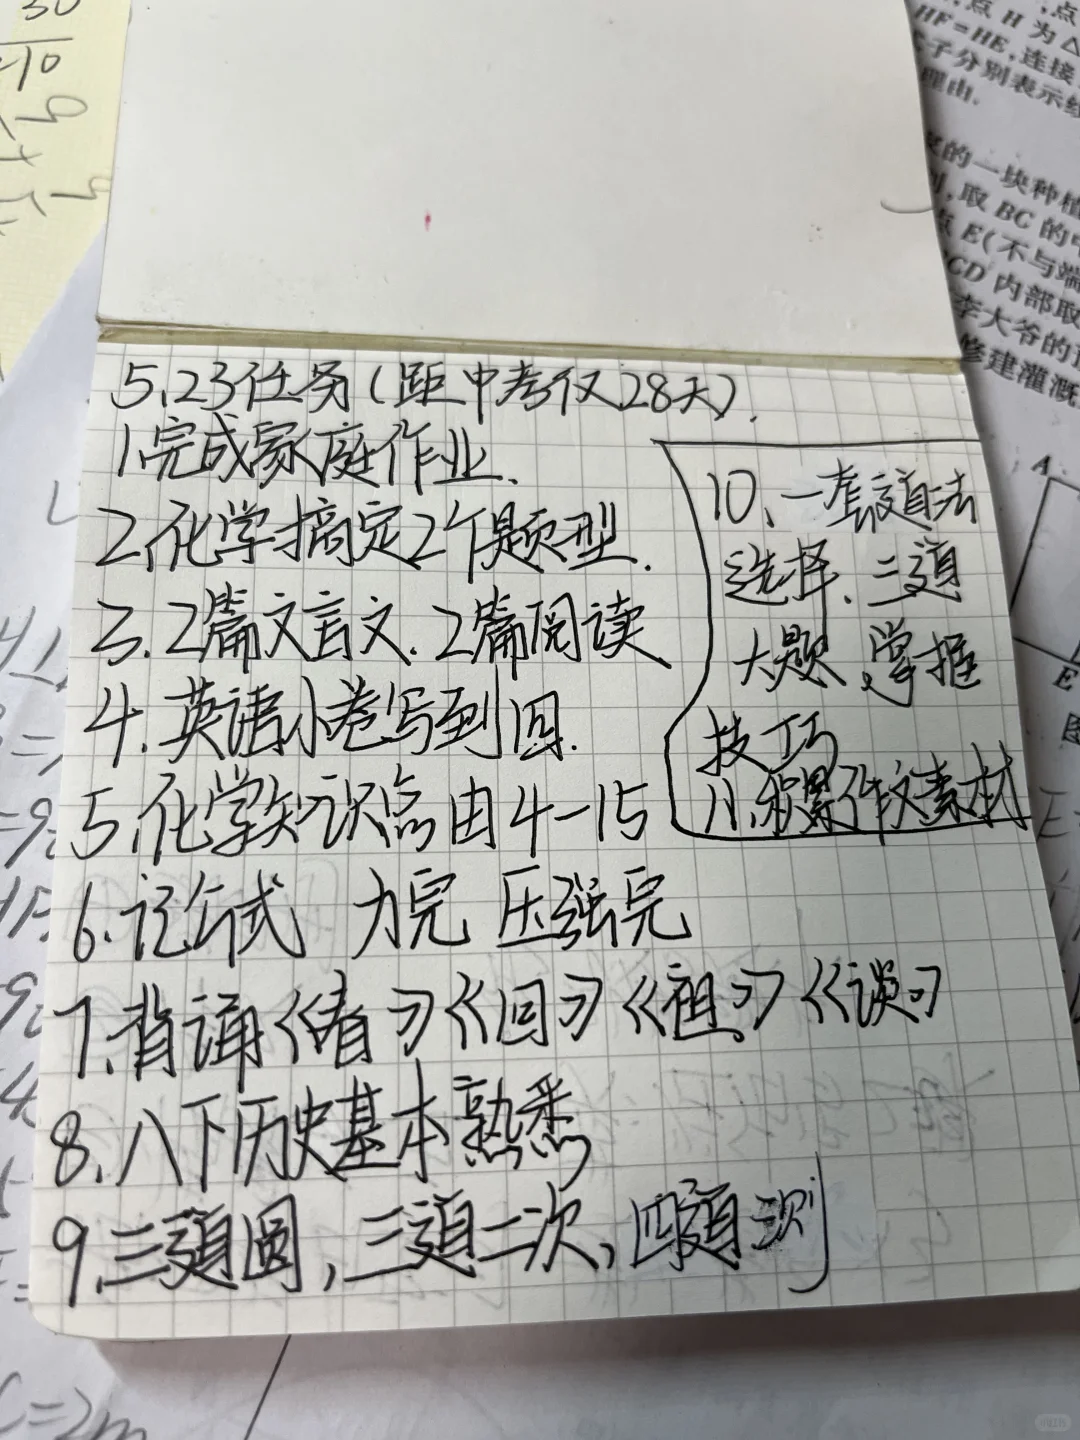 5.23任务(距中考仅28天).
1.完成家庭作业.
2.化学搞定2个题型.
3.2篇文言文.2篇阅读
4.英语小卷写到回.
5.化学知识点由4-15
6.记公式 力完 压强完
7.背诵《春》《回》《祖》《谈》
8.八下历史基本熟悉
9.三道圆,三道二次,四道测
10、一套道法
选择、三道
大题、掌握
技巧
11.积累作文素材
30
10
9
,点 H 为△
HF=HE,连接
子分别表示线
理由.
的一块种植
,取 BC 的中
点 E(不与端
CD 内部取
李大爷的
修建灌溉
A
E
图
C=2m